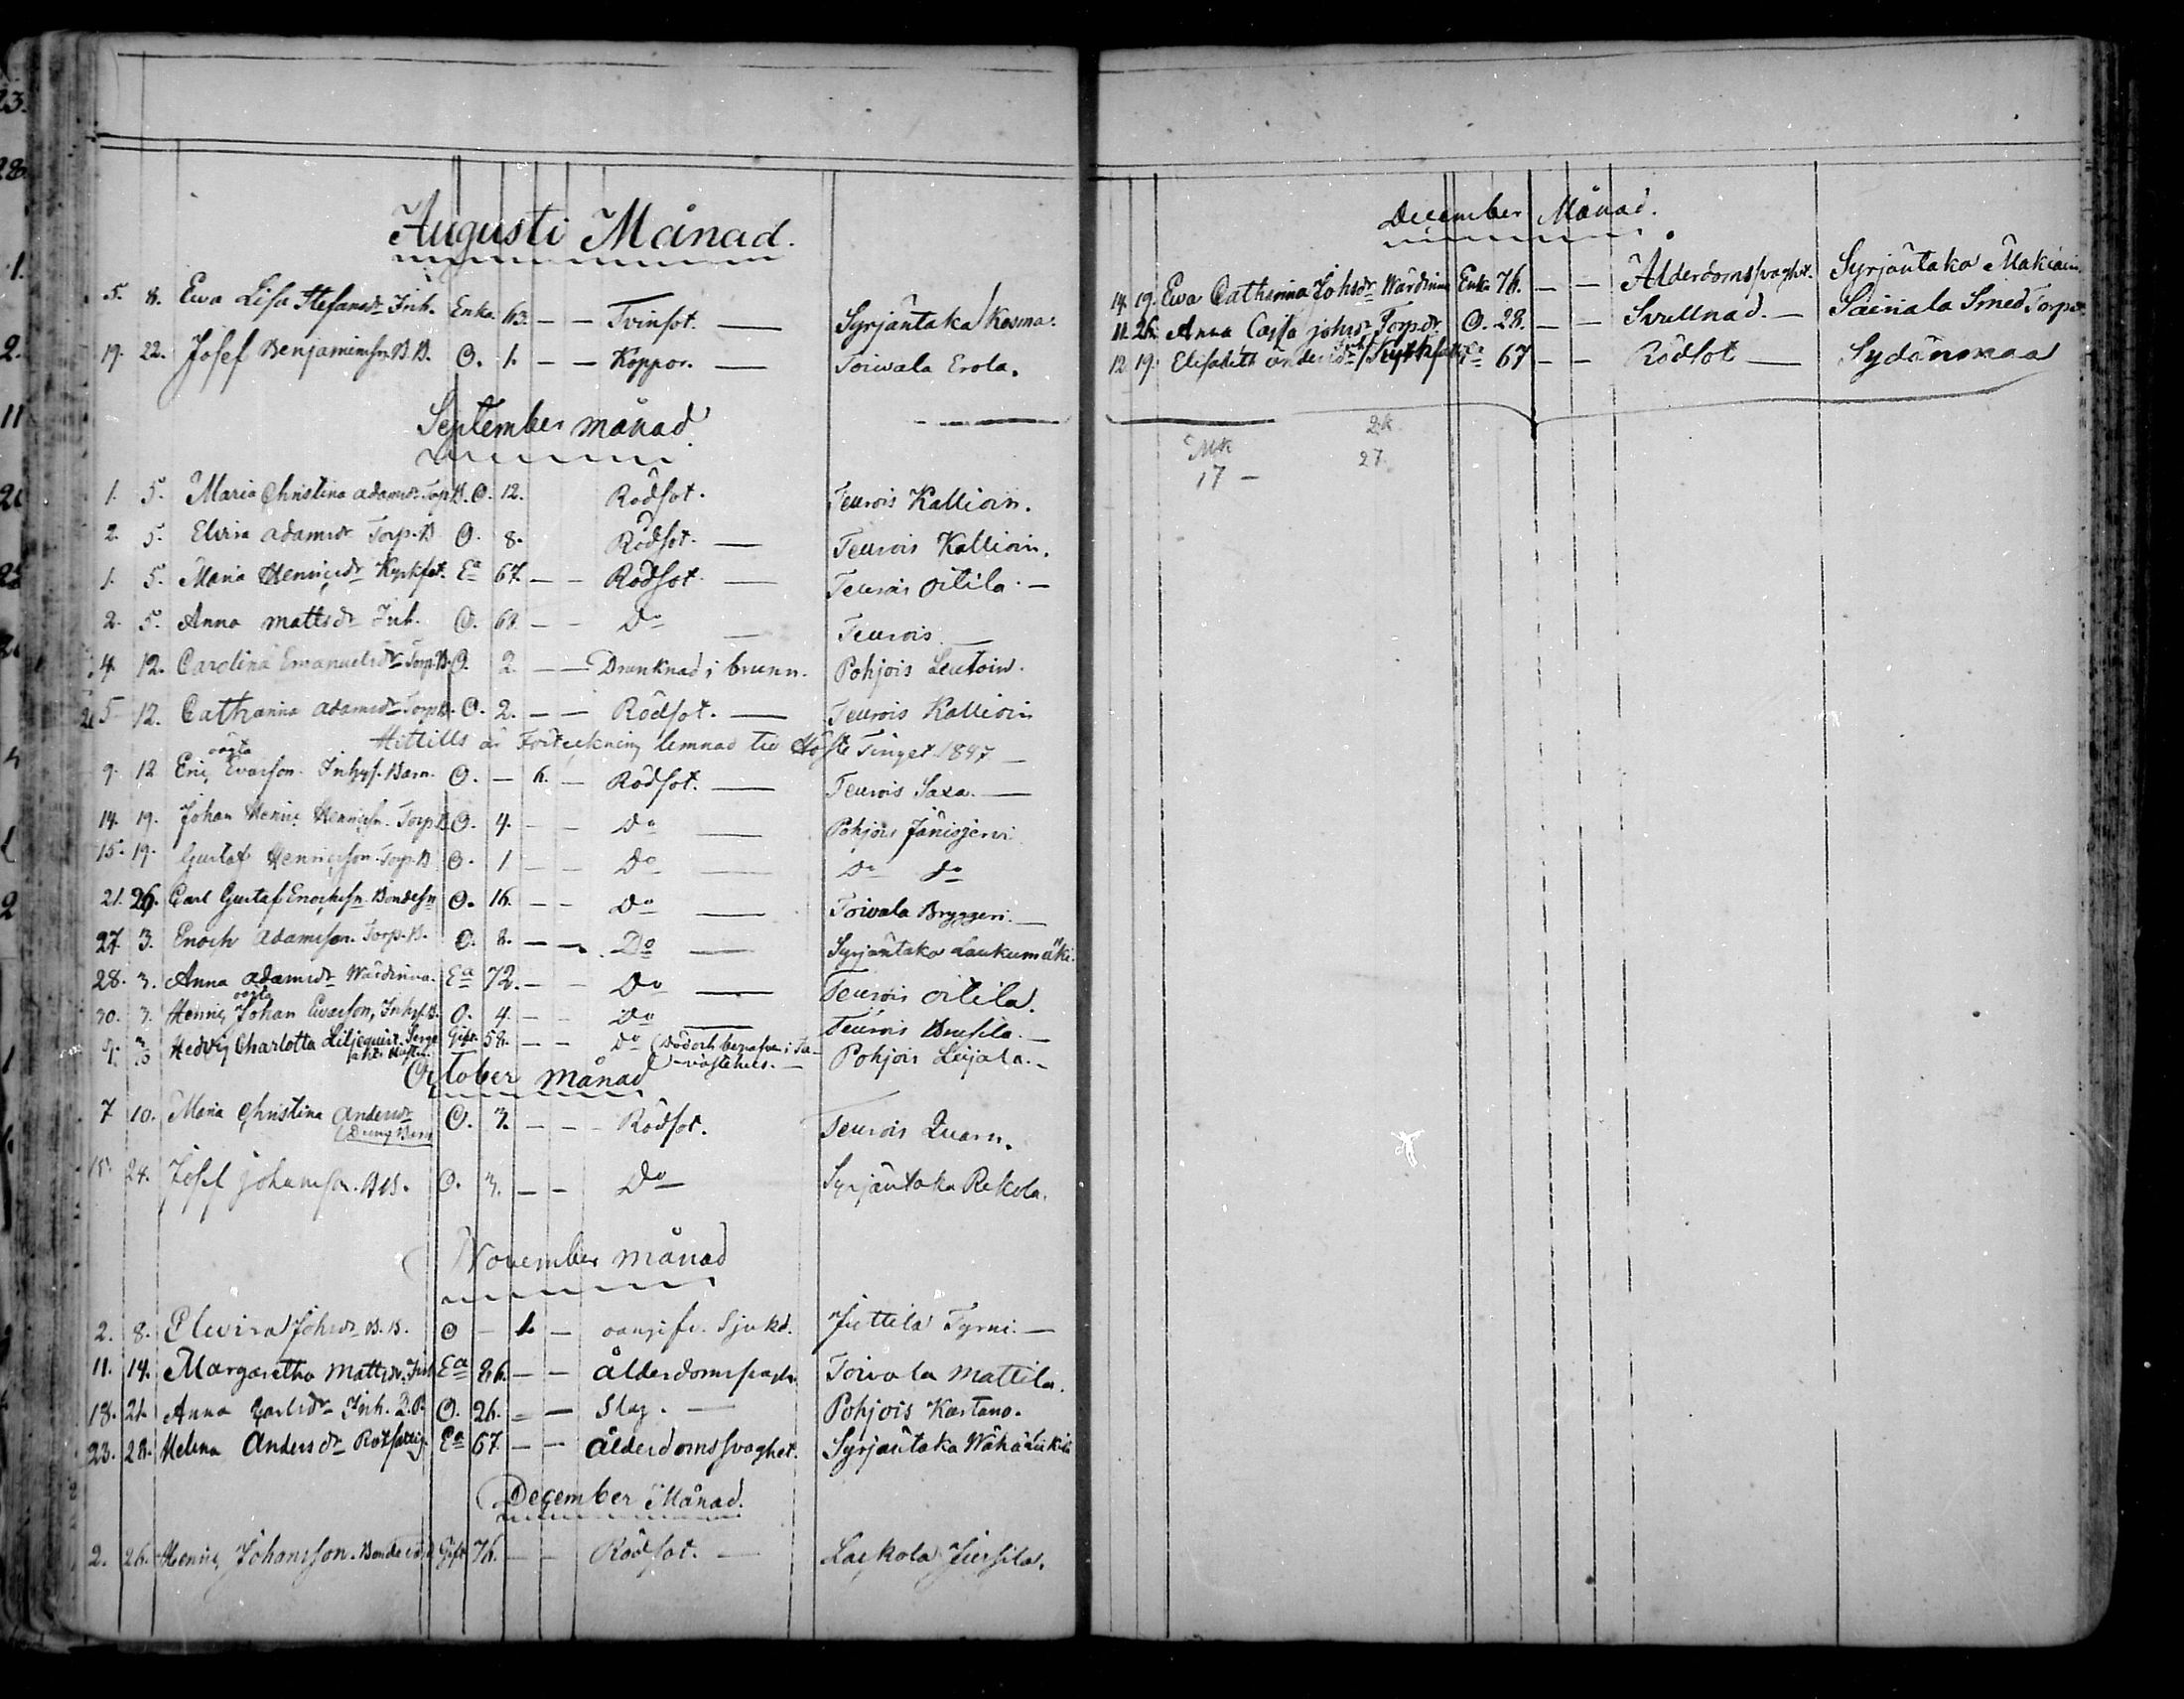 Augusti Månad.
5. 8. Ewa Lisa Stefansdr Inh. Enka 63. — — Tvinsot. — Syrjäntaka Kosma.
19. 22. Josef Benjaminsn B.B. O. 1. — — Koppor. — Toivala Erola.
September månad
1. 5. Maria Christina Adamsdr Torp.B. O. 12. Rödsot. Teurois Kallioin.
2. 5. Elvira Adamsdr Torp.B O. 8. Rödsot. — Teurois Kallioin.
1. 5. Maria Henricsdr Kyrkfat. Ea 67. — — Rödsot. — Teurois Oitila. —
2. 5. Anna Mattsdr Inh. O. 68. — — Do — Teurois. —
4. 12. Carolina Emanuelsdr Torp.B. O. 2. — — Drunknad i brunn. Pohjois Leutoin.
5 12. Catharina Adamsdr Torp.B. O. 2. — — Rödsot. — Teurois Kallioin
Hittills är Förteckning lemnad till Höste Tinget 1847 —
oägta
9. 12 Eric Evasson Inhys. Barn. O. — 6. — Rödsot. — Teurois Saxa. —
14. 19. Johan Henric Henricsn. Torp.B O. 4. — — Do — Pohjois Jänisjervi
15. 19. Gustaf Henricsson. Torp.B O. 1 — — Do — Do do
21. 26. Carl Gustaf Enochsn. Bondesn O. 16. — — Do — Toivala Bryggeri. —
27. 3. Enoch Adamsson. Torp.B. O. 8. — — Do — Syrjäntaka Laukumäki.
28. 3. Anna Adamsdr Wärdinna. Ea 72. — — Do — Teurois Oitila.
oägta
30. 3. Henric Johan Evasson, Inhys.B. O. 4. — — Do — Teurois Brusila. —
9. 3/10 Hedvig Charlotta Liljequist. Serge Gift. 58. — — Do (Död och begrafven i Ta- Pohjois Leijala. —
vastehus. —
October månad
7 10. Maria Christina Andersdr O. 3. — — Rödsot. Teurois Quarn.
(Dreng Barn
15. 24. Josef Johansson. B.B. O. 3. — — Do Syrjäntaka Rekola.
November månad
2. 8. Elvira Johsdr B.B. O — 1. — oangifv. Sjukd. Juttila Tyrni. —
11. 14. Margaretha Mattsdr. Inh Ea 86. — — Ålderdomssvagh. Toivola Mattila.
18. 21. Anna Carlsdr Inh. O. 26. — — Slag. — Pohjois Kastano.
23. 28. Helena Andersdr Rotfattig Ea 67. — — Ålderdomssvaghet. Syrjäntaka
December Månad.
2. 26. Henric Johansson. Gift 76. — — Rödsot. — Laskola Jussila.
December Månad.
14. 19. Ewa Catharina Johsdr Wärdinna Enka 76. — — Ålderdomssvaghet. Syrjäntaka Mäkiäin.
11. 26. Anna Cajsa Johsdr Torp.dr O. 28. — — Svullnad. — Sainala Smed Torp.
12 19. Elisabeth Andersdr Kyrkfat. Ea 67 — — Rödsot — Sydänmaa
Mk 2k
17 — 27.